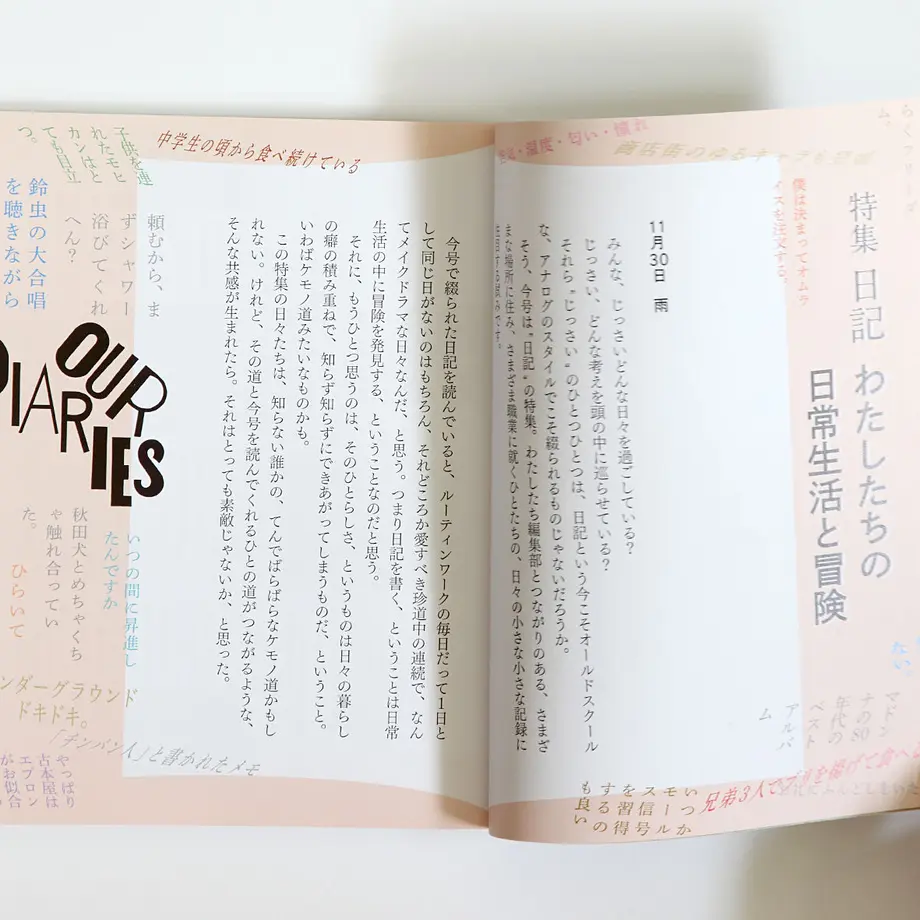 特集 日記 わたしたちの
日常生活と冒険
11月30日 雨
みんな、じっさいどんな日々を過ごしている？
じっさい、どんな考えを頭の中に巡らせている？
それら〝じっさい〟のひとつひとつは、日記という今こそオールドスクール
な、アナログのスタイルでこそ綴られるものじゃないだろうか。
そう、今号は〝日記〟の特集。わたしたち編集部とつながりのある、さまざ
まな場所に住み、さまざま職業に就くひとたちの、日々の小さな小さな記録に
注目する試みです。
今号で綴られた日記を読んでいると、ルーティンワークの毎日だって1日と
して同じ日がないのはもちろん、それどころか愛すべき珍道中の連続で、なん
てメイクドラマな日々なんだ、と思う。つまり日記を書く、ということは日常
生活の中に冒険を発見する、ということなのだと思う。
それに、もうひとつ思うのは、そのひとらしさ、というものは日々の暮らし
の癖の積み重ねで、知らず知らずにできあがってしまうものだ、ということ。
いわばケモノ道みたいなものかも。
この特集の日々たちは、知らない誰かの、てんでばらばらなケモノ道かもし
れない。けれど、その道と今号を読んでくれるひとの道がつながるような、
そんな共感が生まれたら。それはとっても素敵じゃないか、と思った。
OUR
DIARIES
僕は決まってオムラ
イスを注文する。
温度・匂い・
ない。
マドン
ナの80
年代の
ベスト
アルバ
ム
兄弟3人でブリを揚げて食べ
いつか
モール
ス信号
を習得
するの
も良い
中学生の頃から食べ続けている
子供を連
れたモヒ
カンはと
ても目立
つ。
頼むから、ま
ずシャワー
浴びてくれ
へん？
鈴虫の大合唱
を聴きながら
いつの間に昇進し
たんですか
秋田犬とめちゃくち
ゃ触れ合ってい
た。
ひらいて
ンダーグラウンド
ドキドキ。
「チンパン人」と書かれたメモ
やっぱり
古本屋は
エプロン
がお似合